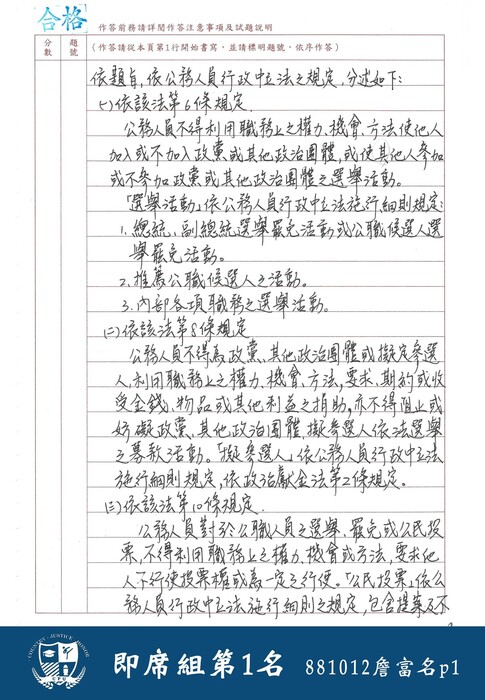 合格
作答前務請詳閱作答注意事項及試題說明
分數
題號
（作答請從本頁第1行開始書寫，並請標明題號，依序作答）
依題旨，依公務人員行政中立法之規定，分述如下：
(一)依該法第6條規定.
公務人員不得利用職務上之權力、機會、方法使他人
加入或不加入政黨或其他政治團體，或使其他人參加
或不參加政黨或其他政治團體之選舉活動。
「選舉活動」依公務人員行政中立法施行細則規定：
1.總統、副總統選舉罷免活動或公職候選人選
舉罷免活動。
2.推薦公職候選人之活動。
3.內部各項職務之選舉活動。
(二)依該法第8條規定
公務人員不得為政黨、其他政治團體或擬定參選
人，利用職務上之權力、機會、方法，要求、期約或收
受金錢、物品或其他利益之捐助，亦不得阻止或
妨礙政黨、其他政治團體、擬參選人依法選舉
之募款活動。「擬參選人」依公務人員行政中立法
施行細則規定，依政治獻金法第2條規定。
(三)依該法第10條規定.
公務人員對於公職人員之選舉、罷免或公民投
票，不得利用職務上之權力、機會或方法，要求他
人不行使投票權或為一定之行使。「公民投票」依公
務人員行政中立法施行細則之規定，包含提案及不
COUNTRY JUSTICE
即席組第1名 881012詹富名p1